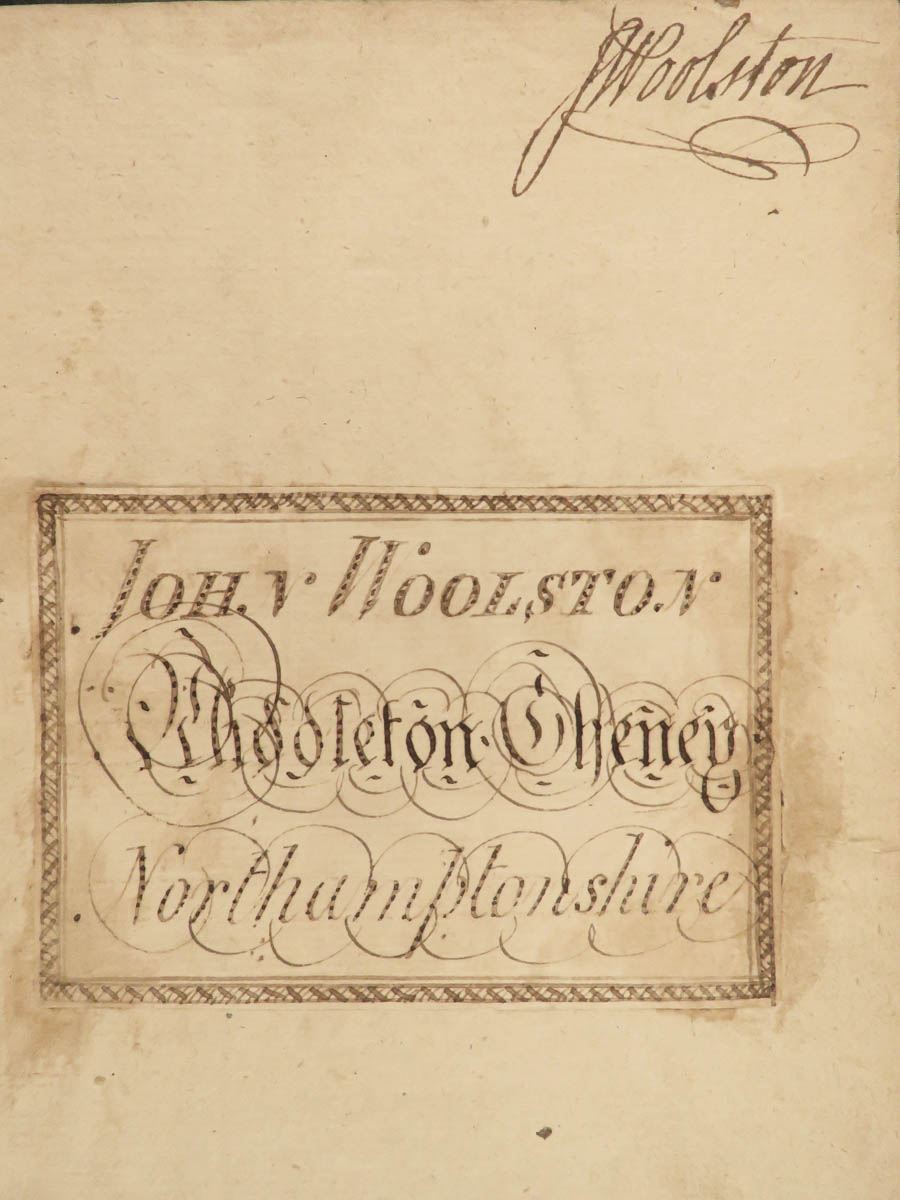 JWoolston
JOHN WOOLSTON
Middleton Cheney
Northamptonshire